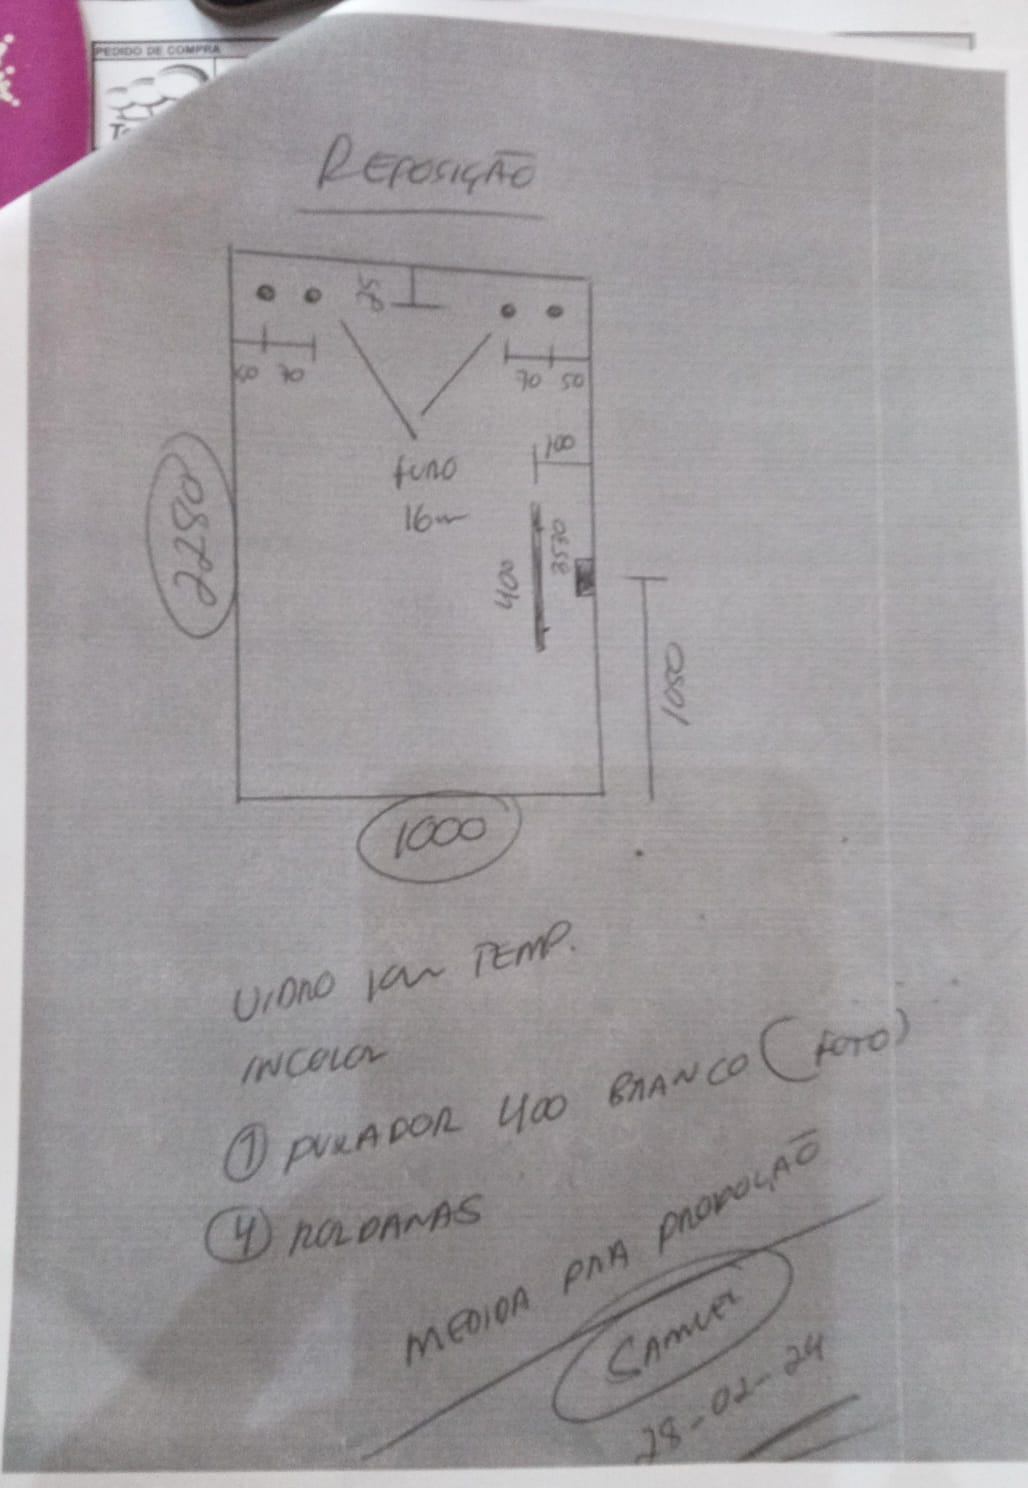 PEDIDO DE COMPRA
REPOSIÇÃO
50 70
70 50
FURO
16
100
2280
400
3530
1050
1000
VIDRO TEMP.
INCOLOR
① PUXADOR 400 BRANCO (FOTO)
④ ROLDANAS
MEDIDA PARA PRODUÇÃO
SAMUEL
28-02-24